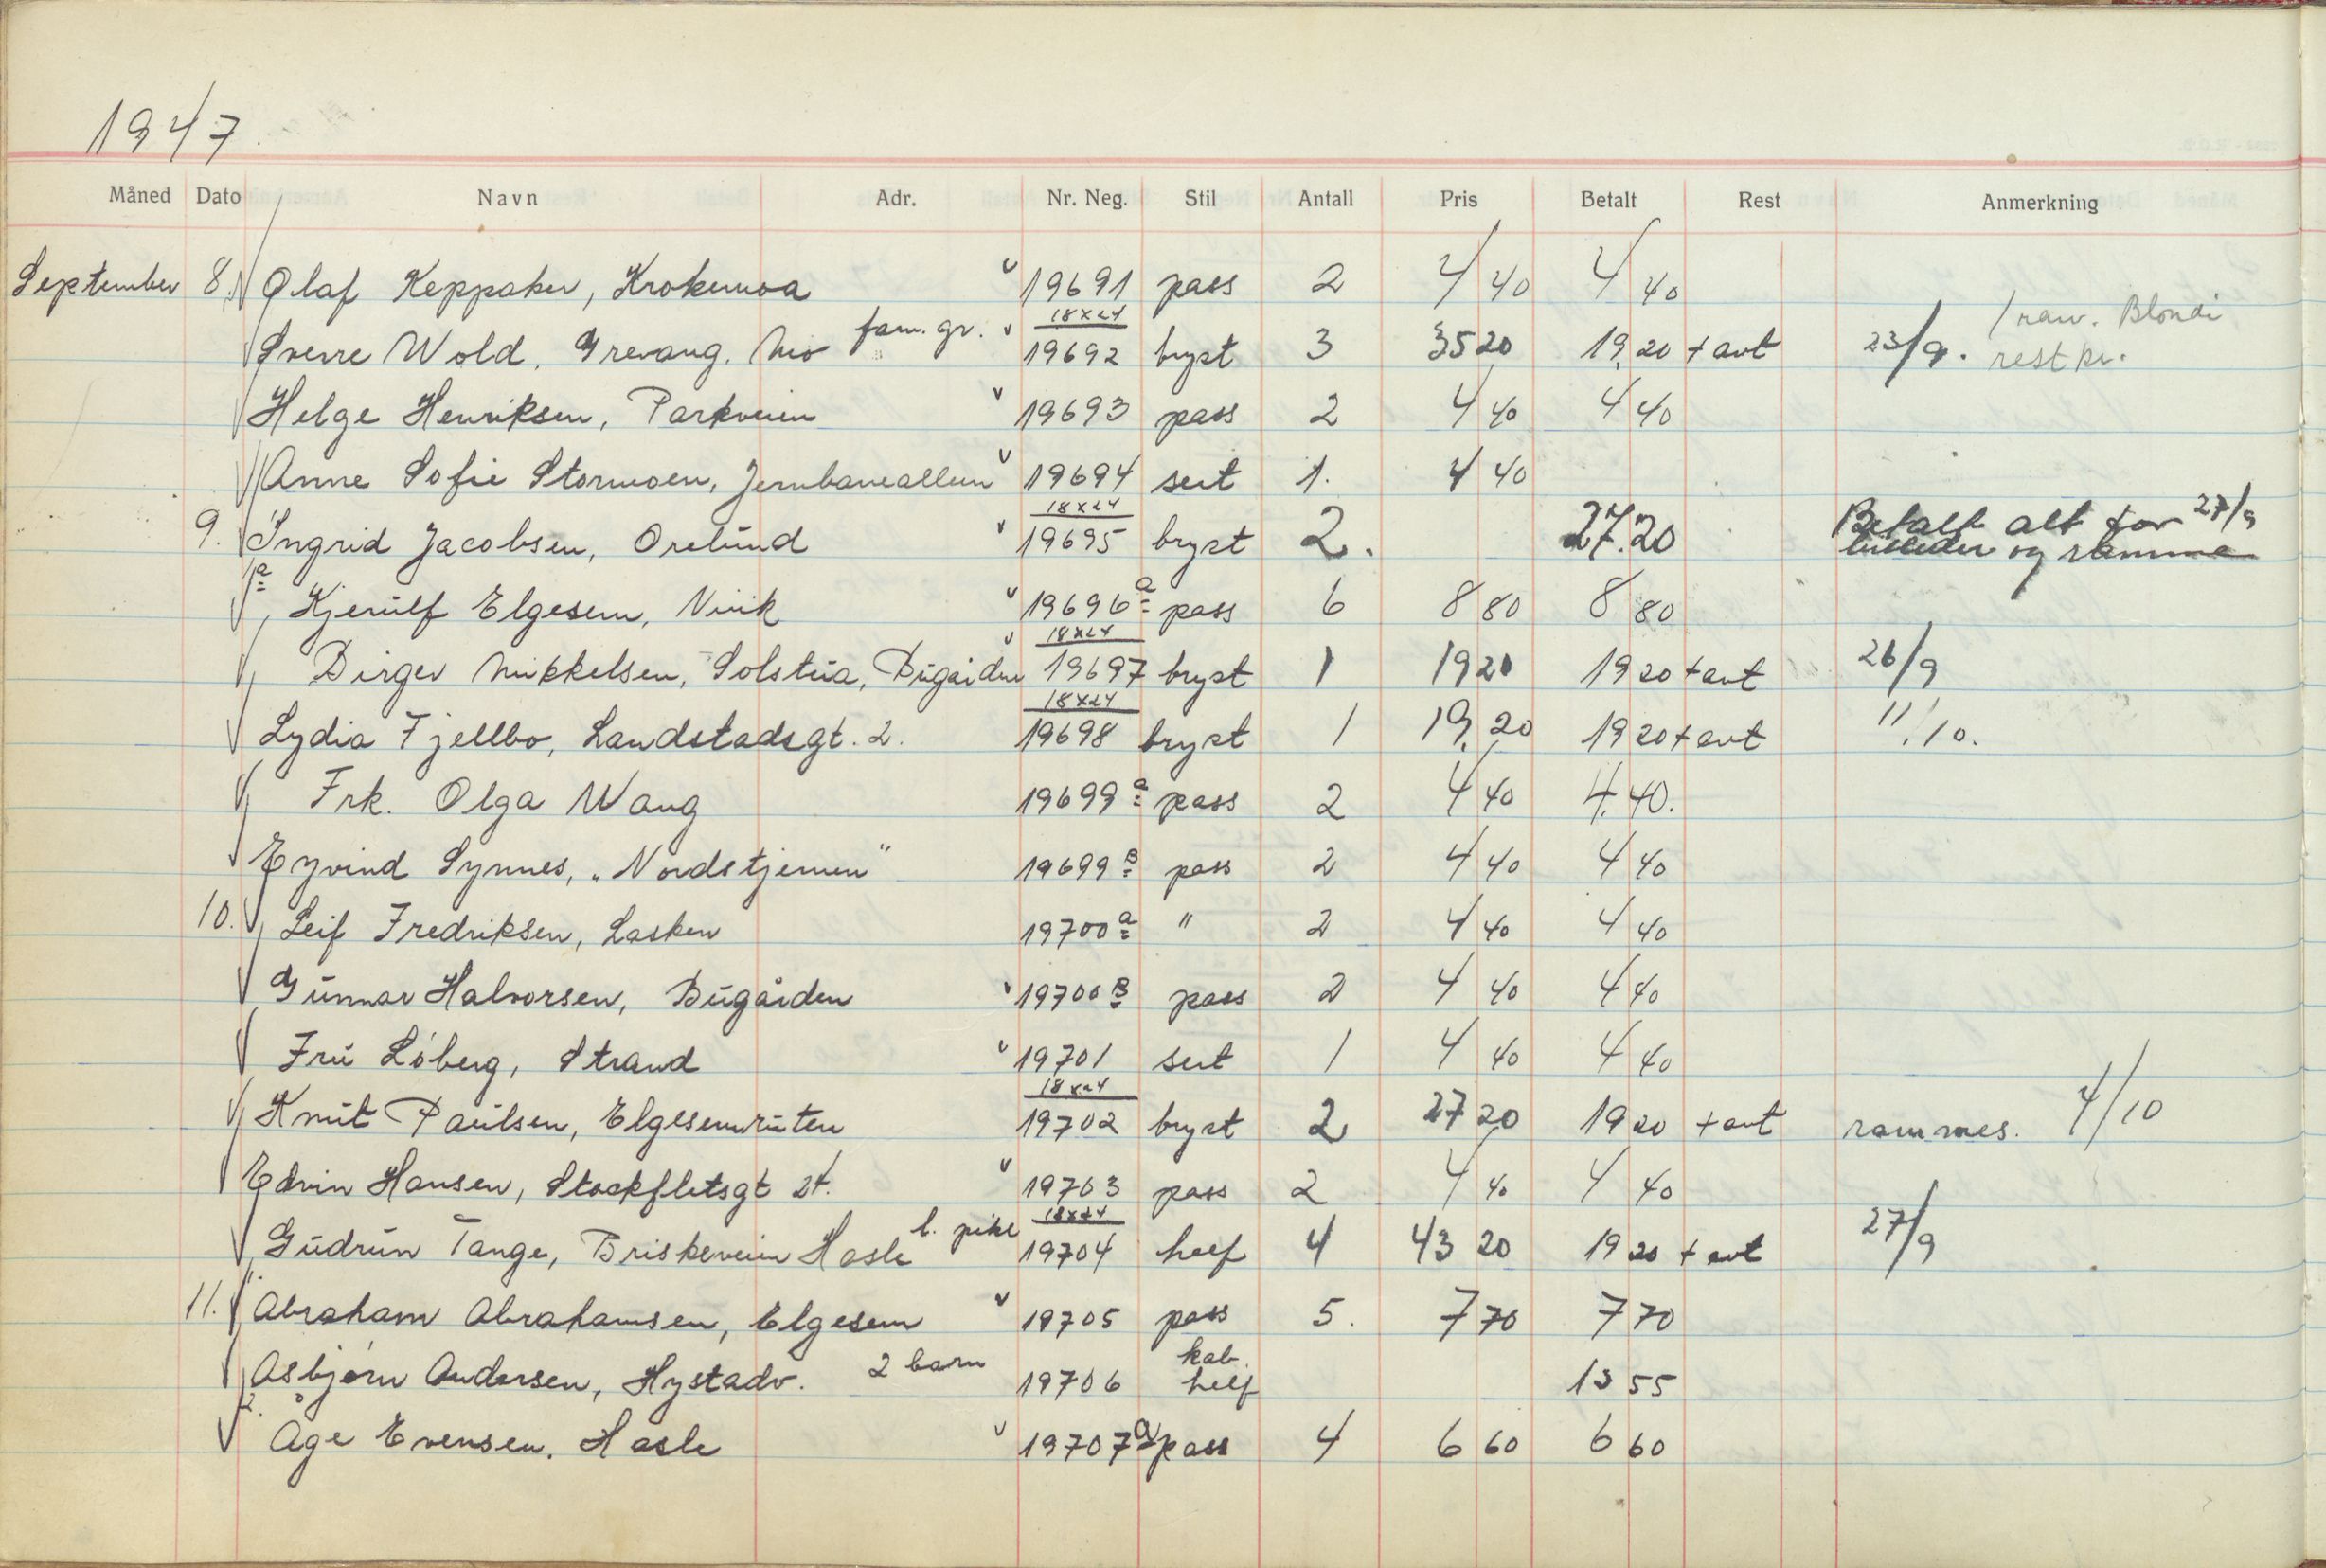 1947.
Måned Dato Navn Adr. Nr. Neg. Stil Antall Pris Betalt Rest Anmerkning
September 8. Olaf Keppaker, Krokemoa 19691 pass 2 4 40 4 40
Sverre Wold, Grevang. Mo fam. gr. 18x24 19692 bryst 3 35 20 19 20 + avt 23/9. 1 ram. Blondi rest kr.
Helge Henriksen, Parkveien 19693 pass 2 4 40 4 40
Anne Sofie Stormoen, Jernbanealleen 19694 seit 1. 4 40
9. Ingrid Jacobsen, Orelund 18x24 19695 bryst 2. 27.20 Betalt alt for 27/9 billeder og ramme
a Kjerulf Elgesem, Virik 19696 a pass 6 8 80 8 80
Birger Mikkelsen, Solstua, Bugården 18x24 19697 bryst 1 19 20 19 20 + avt 26/9
Lydia Fjellbo, Landstadsgt. 2. 18x24 19698 bryst 1 19 20 19 20 + avt 11/10.
Frk. Olga Wang 19699 a pass 2 4 40 4.40.
Eyvind Synnes, „Nordstjernen" 19699 B pass 2 4 40 4 40
10. Leif Fredriksen, Lasken 19700 a " 2 4 40 4 40
Gunnar Halvorsen, Bugården 19700 B pass 2 4 40 4 40
Fru Løberg, Strand 19701 seit 1 4 40 4 40
Knut Paulsen, Elgesemruten 18x24 19702 bryst 2 27 20 19 20 + avt rammes. 4/10
Edvin Hansen, Stockfletsgt 24. 19703 pass 2 4 40 4 40
Gudrun Tange, Briskeveien Hasle l. pike 18x24 19704 helf 4 43 20 19 20 + avt 27/9
11. Abraham Abrahamsen, Elgesem 19705 pass 5. 7 70 7 70
Asbjørn Andersen, Hystadv. 2 barn 19706 kab. helf 13 55
Åge Evensen. Hasle 19707 a pass 4 6 60 6 60